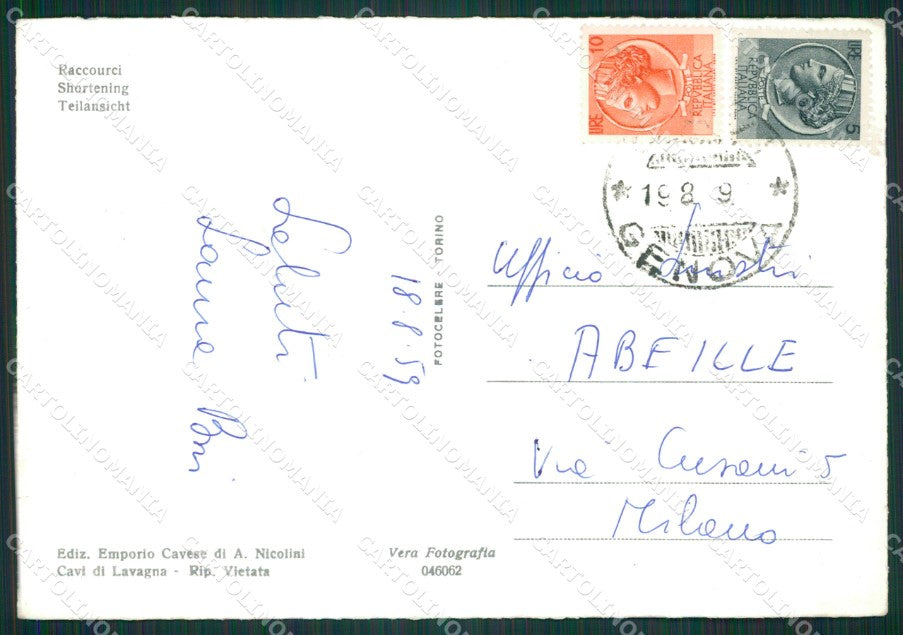 Raccourci
Shortening
Teilansicht
LIRE 10
POSTE
REPVBBLICA
ITALIANA
LIRE 5
POSTE
REPVBBLICA
ITALIANA
19 8 9
GENOVA
Saluti
Laura
18.8.59
FOTOCELERE TORINO
Ufficio
ABEILLE
Via Cusani 5
Milano
Ediz. Emporio Cavese di A. Nicolini
Cavi di Lavagna - Rip. Vietata
Vera Fotografia
046062
CARTOLINOMANIA